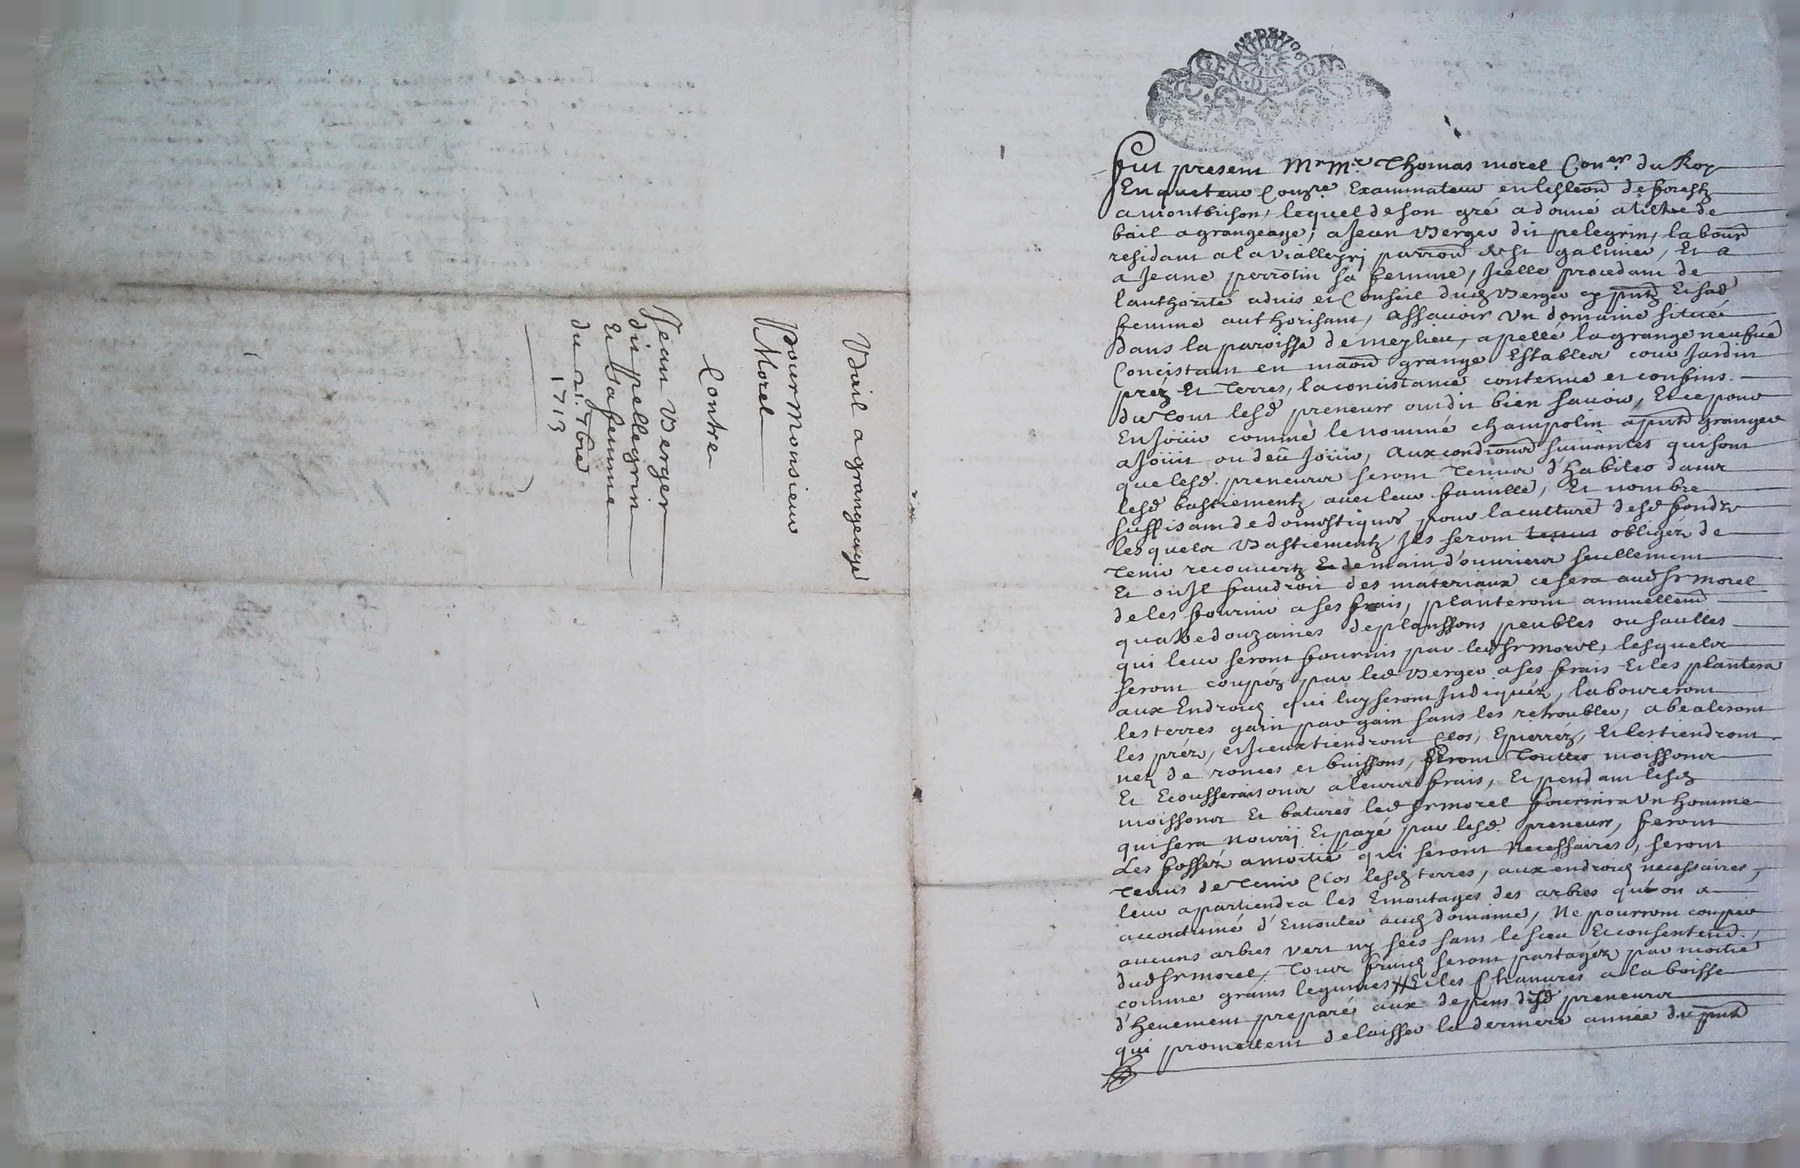 Bail a grangeage
pour Monsieur
Morel
Contre
Jean Verger
dit pellegrin
Et sa femme
du 2e 7bre
1713
GEN DE LION
fut present Mr Mre Thomas morel Coner du Roy
Enqueteur Comre Examinateur en lesleon de forestz
a montbrison, lequel de son gré a donné a tiltre de
bail a grangeage, a Jean Verger dit pelegrin, labour
residant a la Vialle parron de st galmier, Et a
a Jeane perrotin sa femme, Icelle procedant de
l'authorité advis et Conseil dud Verger cy pnt Et sad
femme authorisant, assavoir Un domaine situé
dans la paroisse de meylieu, apellé la grange neufue
Concistant en maon grange Establer cour Jardin
prez Et Terres, la concistance contenue et confins.
du Tout lesd preneurs ont dit bien savoir, Et ce pour
En Joüir comme le nommé champolin a pnt granger
a Joüit ou deü Joüir, Aux conditions suivantes qui sont
que lesd. preneurs seront Tenus d'habiter dans
lesd bastiementz avec leur famille, Et nombre
suffisant de domestiques pour la culture desd fondz
lesquels Bastiementz Ils seront tenus obligés de
Tenir recouvertz Et de main d'ouvriers seullement
Et où Il faudroit des materiaux ce sera aud Sr morel
de les fournir a ses frais, planteront annuellemt
quatre douzaines de planssons peubles ou saulles
qui leur seront fournis par led Sr morel, lesquels
seront coupéz par led Verger a ses frais Et les plantera
aux Endroitz qui luy seront Indiquéz, laboureront
les terres gain par gain sans les retroubler, abealeront
les préz, et Iceux tiendront Clos, Epierréz, Et les tiendront
net de ronces et buissons, feront Toutes moissons
Et Ecousseraisons a leurs frais, Et pendant lesd
moissons Et batures led Sr morel fournira Un homme
qui sera nourri Et payé par lesd. preneurs, feront
Les fosséz a moitié qui seront Necessaires, seront
Tenus de Tenir Clos lesd terres, aux endroitz necessaires,
leur apartiendra les Emontages des arbres qu'on a
accoutumé d'Emonter aud domaine, Ne pourront couper
aucuns arbres vert ny secs sans le sceu Et consentemt.
dud Sr morel, Tous fruitz seront partagéz par moitié
comme grains legumes Et les Chanvres a la boisse
d'hevement preparé aux depens desd preneurs
qui promettent delaisser la derniere année du pnt